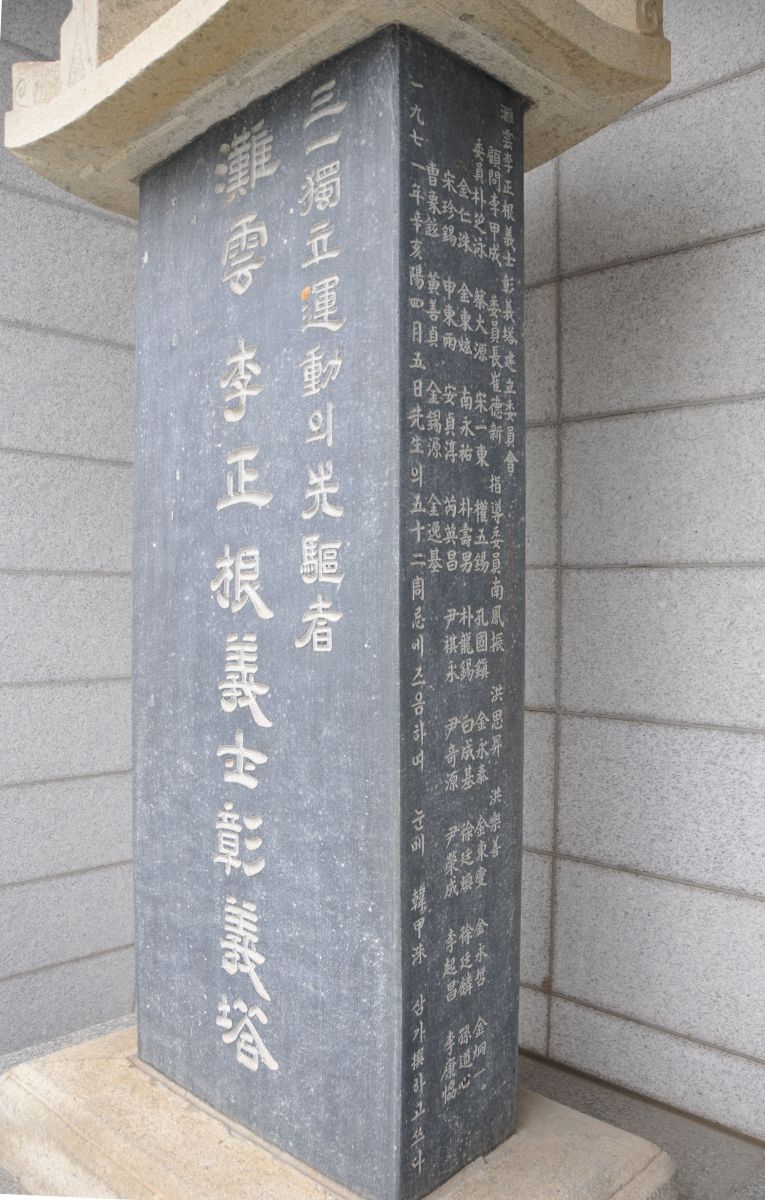 三一獨立運動의先驅者
灘雲 李正根義士彰義塔
灘雲李正根義士彰義塔建立委員會
顧問李甲成 委員長崔德新 指導委員南鳳振 洪思昇 洪樂善
委員朴芝泳 蔡大源 宋一東 權五錫 孔國鎭 金永泰 金東燮 金永哲 金炯一
金仁洙 金東炫 南永祐 朴壽男 朴龍錫 白成基 徐廷煥 徐廷麟 孫道心
宋珍錫 申東雨 安貞淳 芮英昌 尹祺永 尹奇源 尹榮成 李起昌 李康協
黃善貞 金錫源 金逸基
一九七一年辛亥陽四月五日先生의五十二周忌에즈음하여 눈메 韓甲洙 삼가撰하고쓰다